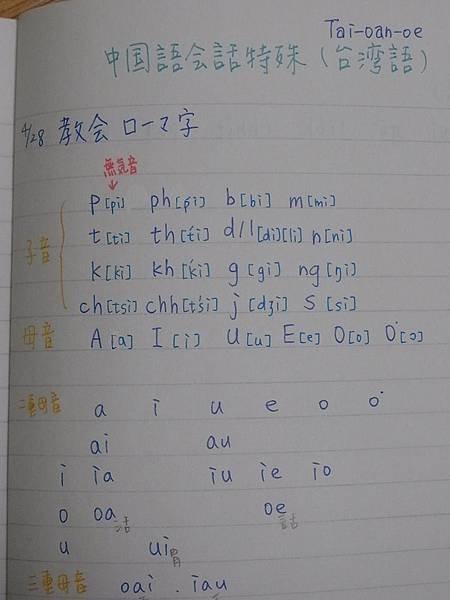 Tai-oan-oe
中国語会話特殊(台湾語)
4/28 教会ローマ字
無気音
↓
子音
p[pi] ph[ṕi] b[bi] m[mi]
t[ti] th[t́i] d/l[di][li] n[ni]
k[ki] kh[ḱi] g[gi] ng[ŋi]
ch[tsi] chh[tśi] j[dʒi] s[si]
母音 A[a] I[i] U[u] E[e] O[o] O͘[ɔ]
二重母音 a i u e o o͘
ai au
i ia iu ie io
o oa活 oe話
u ui胃
三重母音 oai . iau